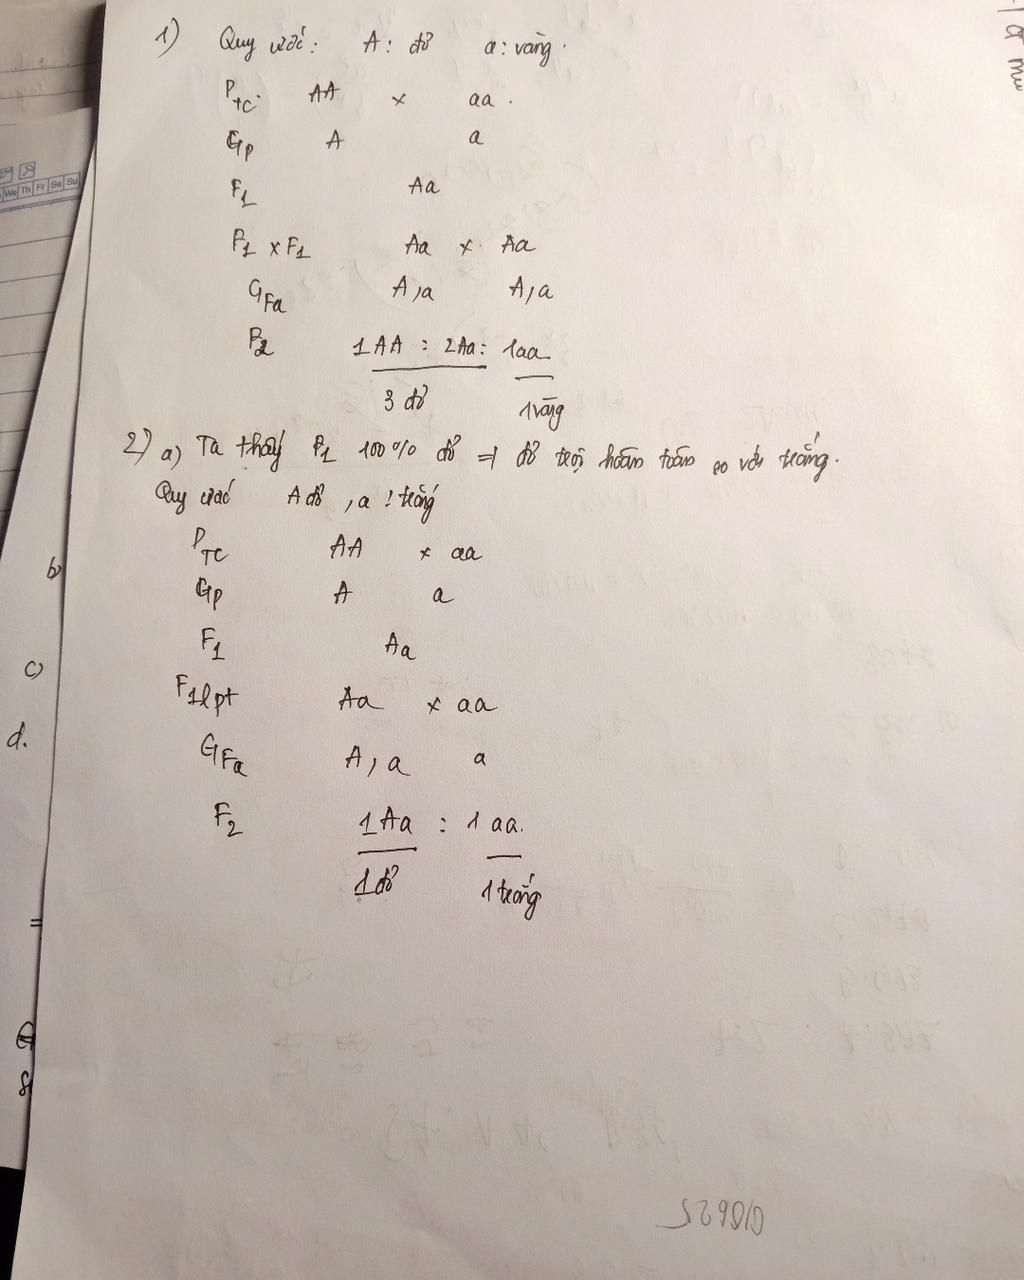 1) Quy ước: A: đỏ a: vàng.
P_TC. AA x aa.
G_P A a
F1 Aa
F1 x F1 Aa x Aa
G_Fa A,a A,a
F2 1AA : 2Aa : 1aa
3 đỏ 1 vàng
2) a) Ta thấy F1 100% đỏ => đỏ trội hoàn toàn so với trắng.
Quy ước A đỏ, a: trắng
P_TC AA x aa
G_P A a
F1 Aa
F1 lpt Aa x aa
G_Fa A, a a
F2 1Aa : 1 aa.
1 đỏ 1 trắng
b)
c)
d.
=
We Th Fr Sa Su